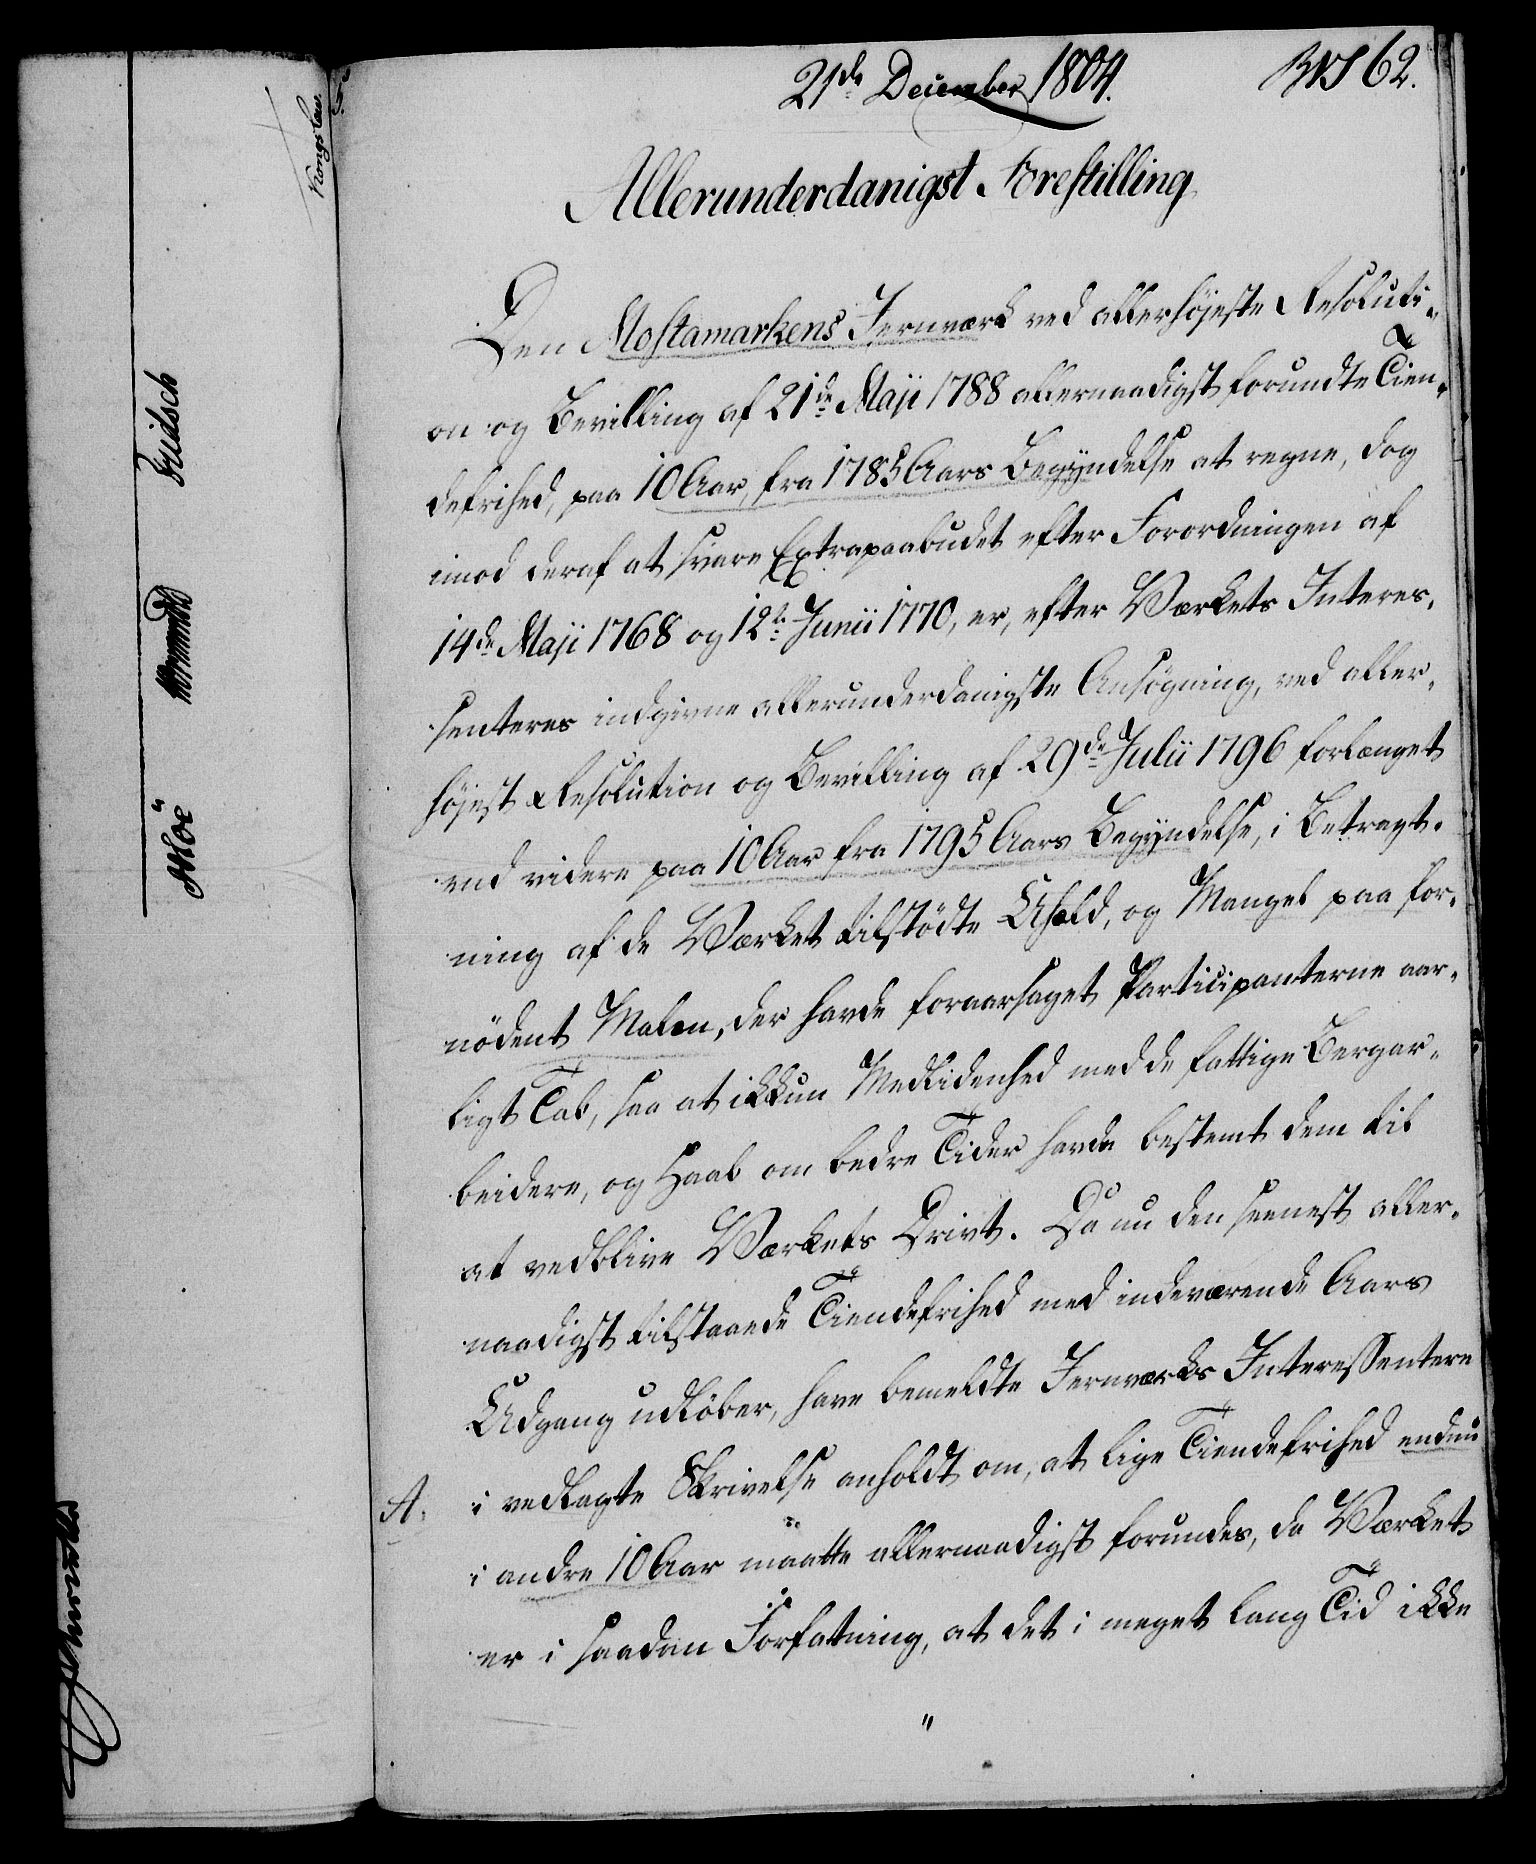 21de December 1804.
No 62.
Allerunderdanigst Forestilling
Den Mostamarkens Jernværk ved allerhøjeste Resoluti-
on og Bevilling af 21de Maji 1788 allernaadigst forundte Tien-
defrihed, paa 10 Aar, fra 1785 Aars Begyndelse at regne, dog
imod deraf at svare Extrapaabudet efter Forordningen af
14de Maji 1768 og 12te Junii 1770, er, efter Værkets Interes-
senteres indgivne allerunderdanigste Ansøgning, ved aller-
højest Resolution og Bevilling af 29de Julii 1796 forlænget
end videre paa 10 Aar fra 1795 Aars Begyndelse, i Betragt-
ning af de Værket tilstødte Uheld, og Mangel paa for-
nødent Malm, der havde foraarsaget Participanterne aar-
ligt Tab, saa at ikkun Medlidenhed med de fattige Bergar-
beidere, og Haab om bedre Tider havde bestemt dem til
at vedblive Værkets Drivt. Da nu den seenest aller-
naadigst tilstaaede Tiendefrihed med indeværende Aars
Udgang udløber, have bemeldte Jernværks Interessentere
A. i vedlagte Skrivelse anholdt om, at lige Tiendefrihed endnu
i andre 10 Aar maatte allernaadigst forundes, da Værket
er i saadan Forfatning, at det i meget lang Tid ikke
"
Fridsch
Kongslew